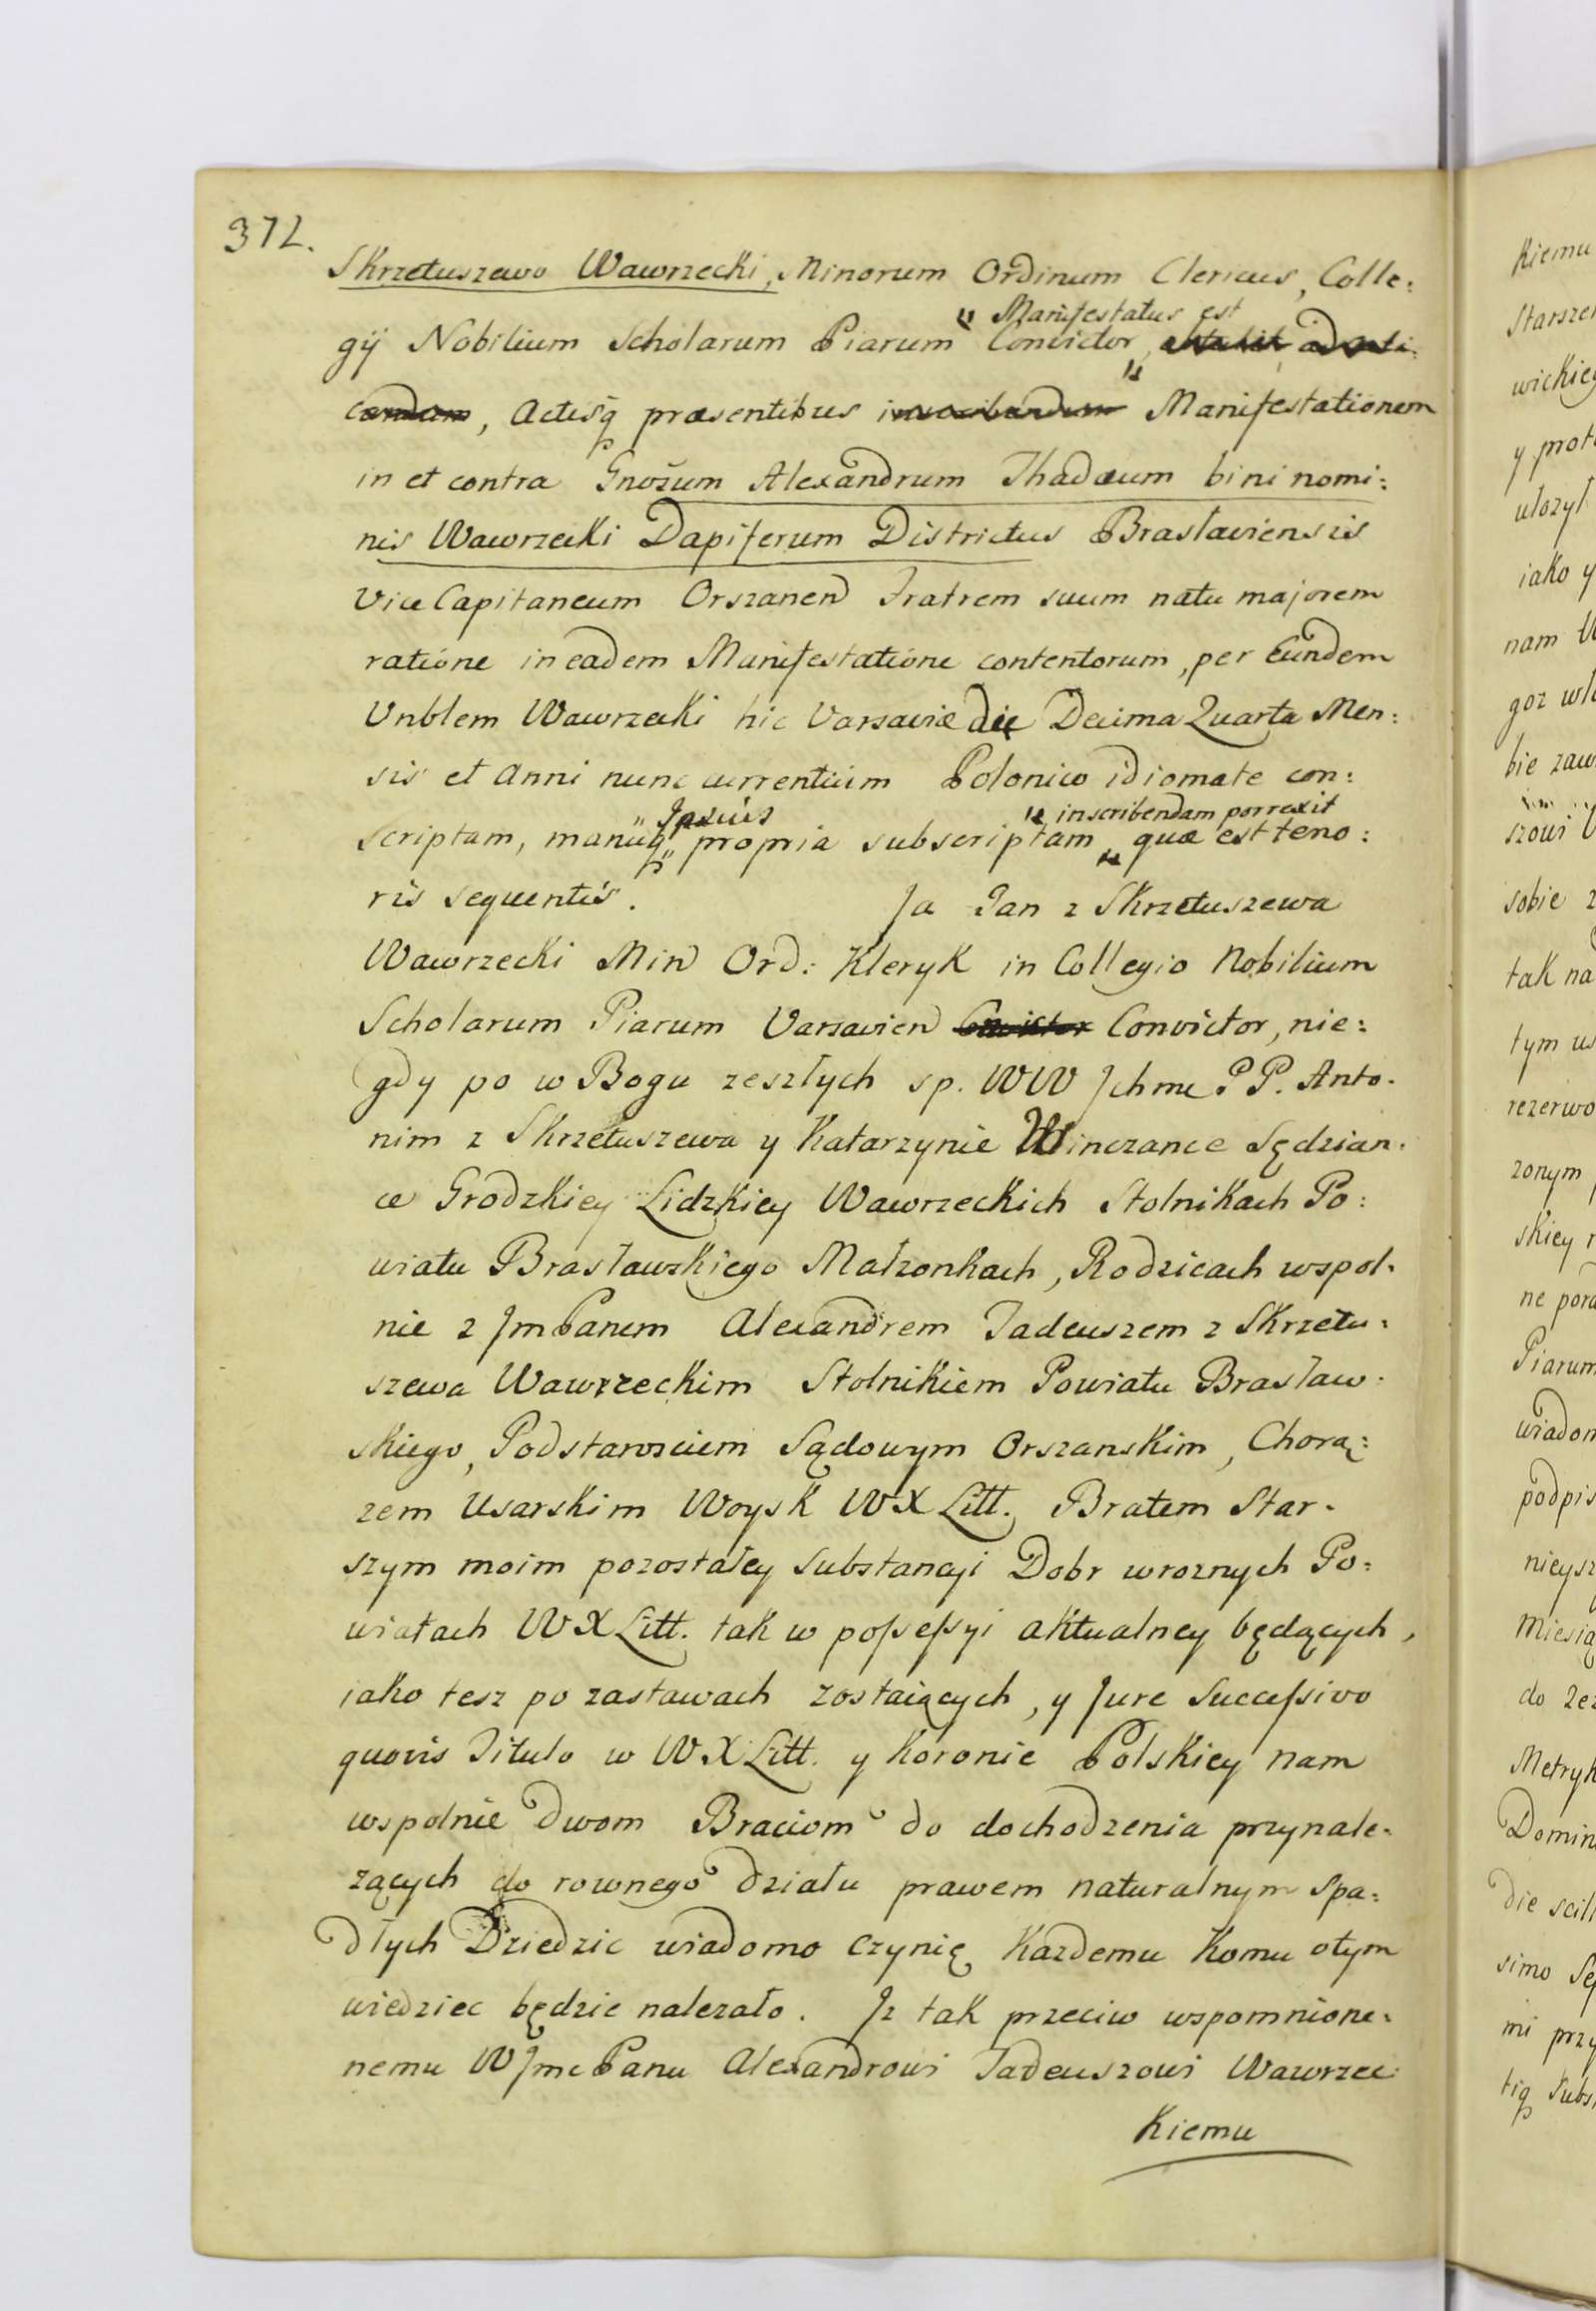 372.
Skrzetuszewo Wawrzecki, Minorum Ordinum Clericus, Colle:
Manifestatus est
gij Nobilium Scholarum Piarum Convictor,
candam, Actisq praesentibus inscribendam Manifestationem
in et contra Gnosum Alexandrum Thadæum bini nomi:
nis Wawrzecki Dapiferum Districtus Braslaviensis
Vice Capitaneum Orszanen Fratrem suum natu majorem
ratione in eadem Manifestatione contentorum, per Eundem
Vnblem Wawrzecki hic Varsaviæ die Decima Quarta Men:
sis et Anni nunc currentium Polonico idiomate con:
Ipsius inscribendam porrexit
Scriptam, manuq propria subscriptam quæ est teno:
ris sequentis. Ja Jan z Skrzetuszewa
Wawrzecki Min Ord: Kleryk in Collegio Nobilium
Scholarum Piarum Varsavien Convictor Convictor, nie:
gdy po w Bogu zeszłych sp. WW Jchmc PP. Anto.
nim z Skrzetuszewa y Katarzynie Winczance Sędzian.
ce Grodzkiey Lidzkiey Wawrzeckich Stolnikach Po:
wiatu Brasławskiego Małzonkach, Rodzicach wspol.
nie z Jm Panem Alexandrem Tadeuszem z Skrzetu:
szewa Wawrzeckim Stolnikiem Powiatu Brasław.
skiego, Podstarosciem Sądowym Orszanskim, Chorą:
zem Usarskim Woysk WX Litt. Bratem Star.
szym moim pozostałey Substancyi Dobr wroznych Po:
wiatach WX Litt. tak w possessyi aktualney będących,
iako tesz po zastawach zostaiących, y Jure Successivo
quovis Titulo w WX Litt. y Koronie Polskiey nam
wspolnie dwom Braciom do dochodzenia przynale.
zących do rownego działu prawem naturalnym spa:
dłych Dziedzic wiadomo czynię Kazdemu Komu otym
wiedziec będzie nalezało. Jz tak przeciw wspomnione.
nemu WJmc Panu Alexandrowi Tadeuszowi Wawrzec
Kiemu
Kiemu
Starsze
wickieg
y prot
ułozył
iako y
nam
goz wł
bie zaw
szowi
sobie z
tak na
tym us
rezerwo
zonym
skiey
ne pora
Piarum
wiadom
podpis
nieysz
Miesią
do
Metryk
Domin
die scil
simo
mi przy
tiq Subs